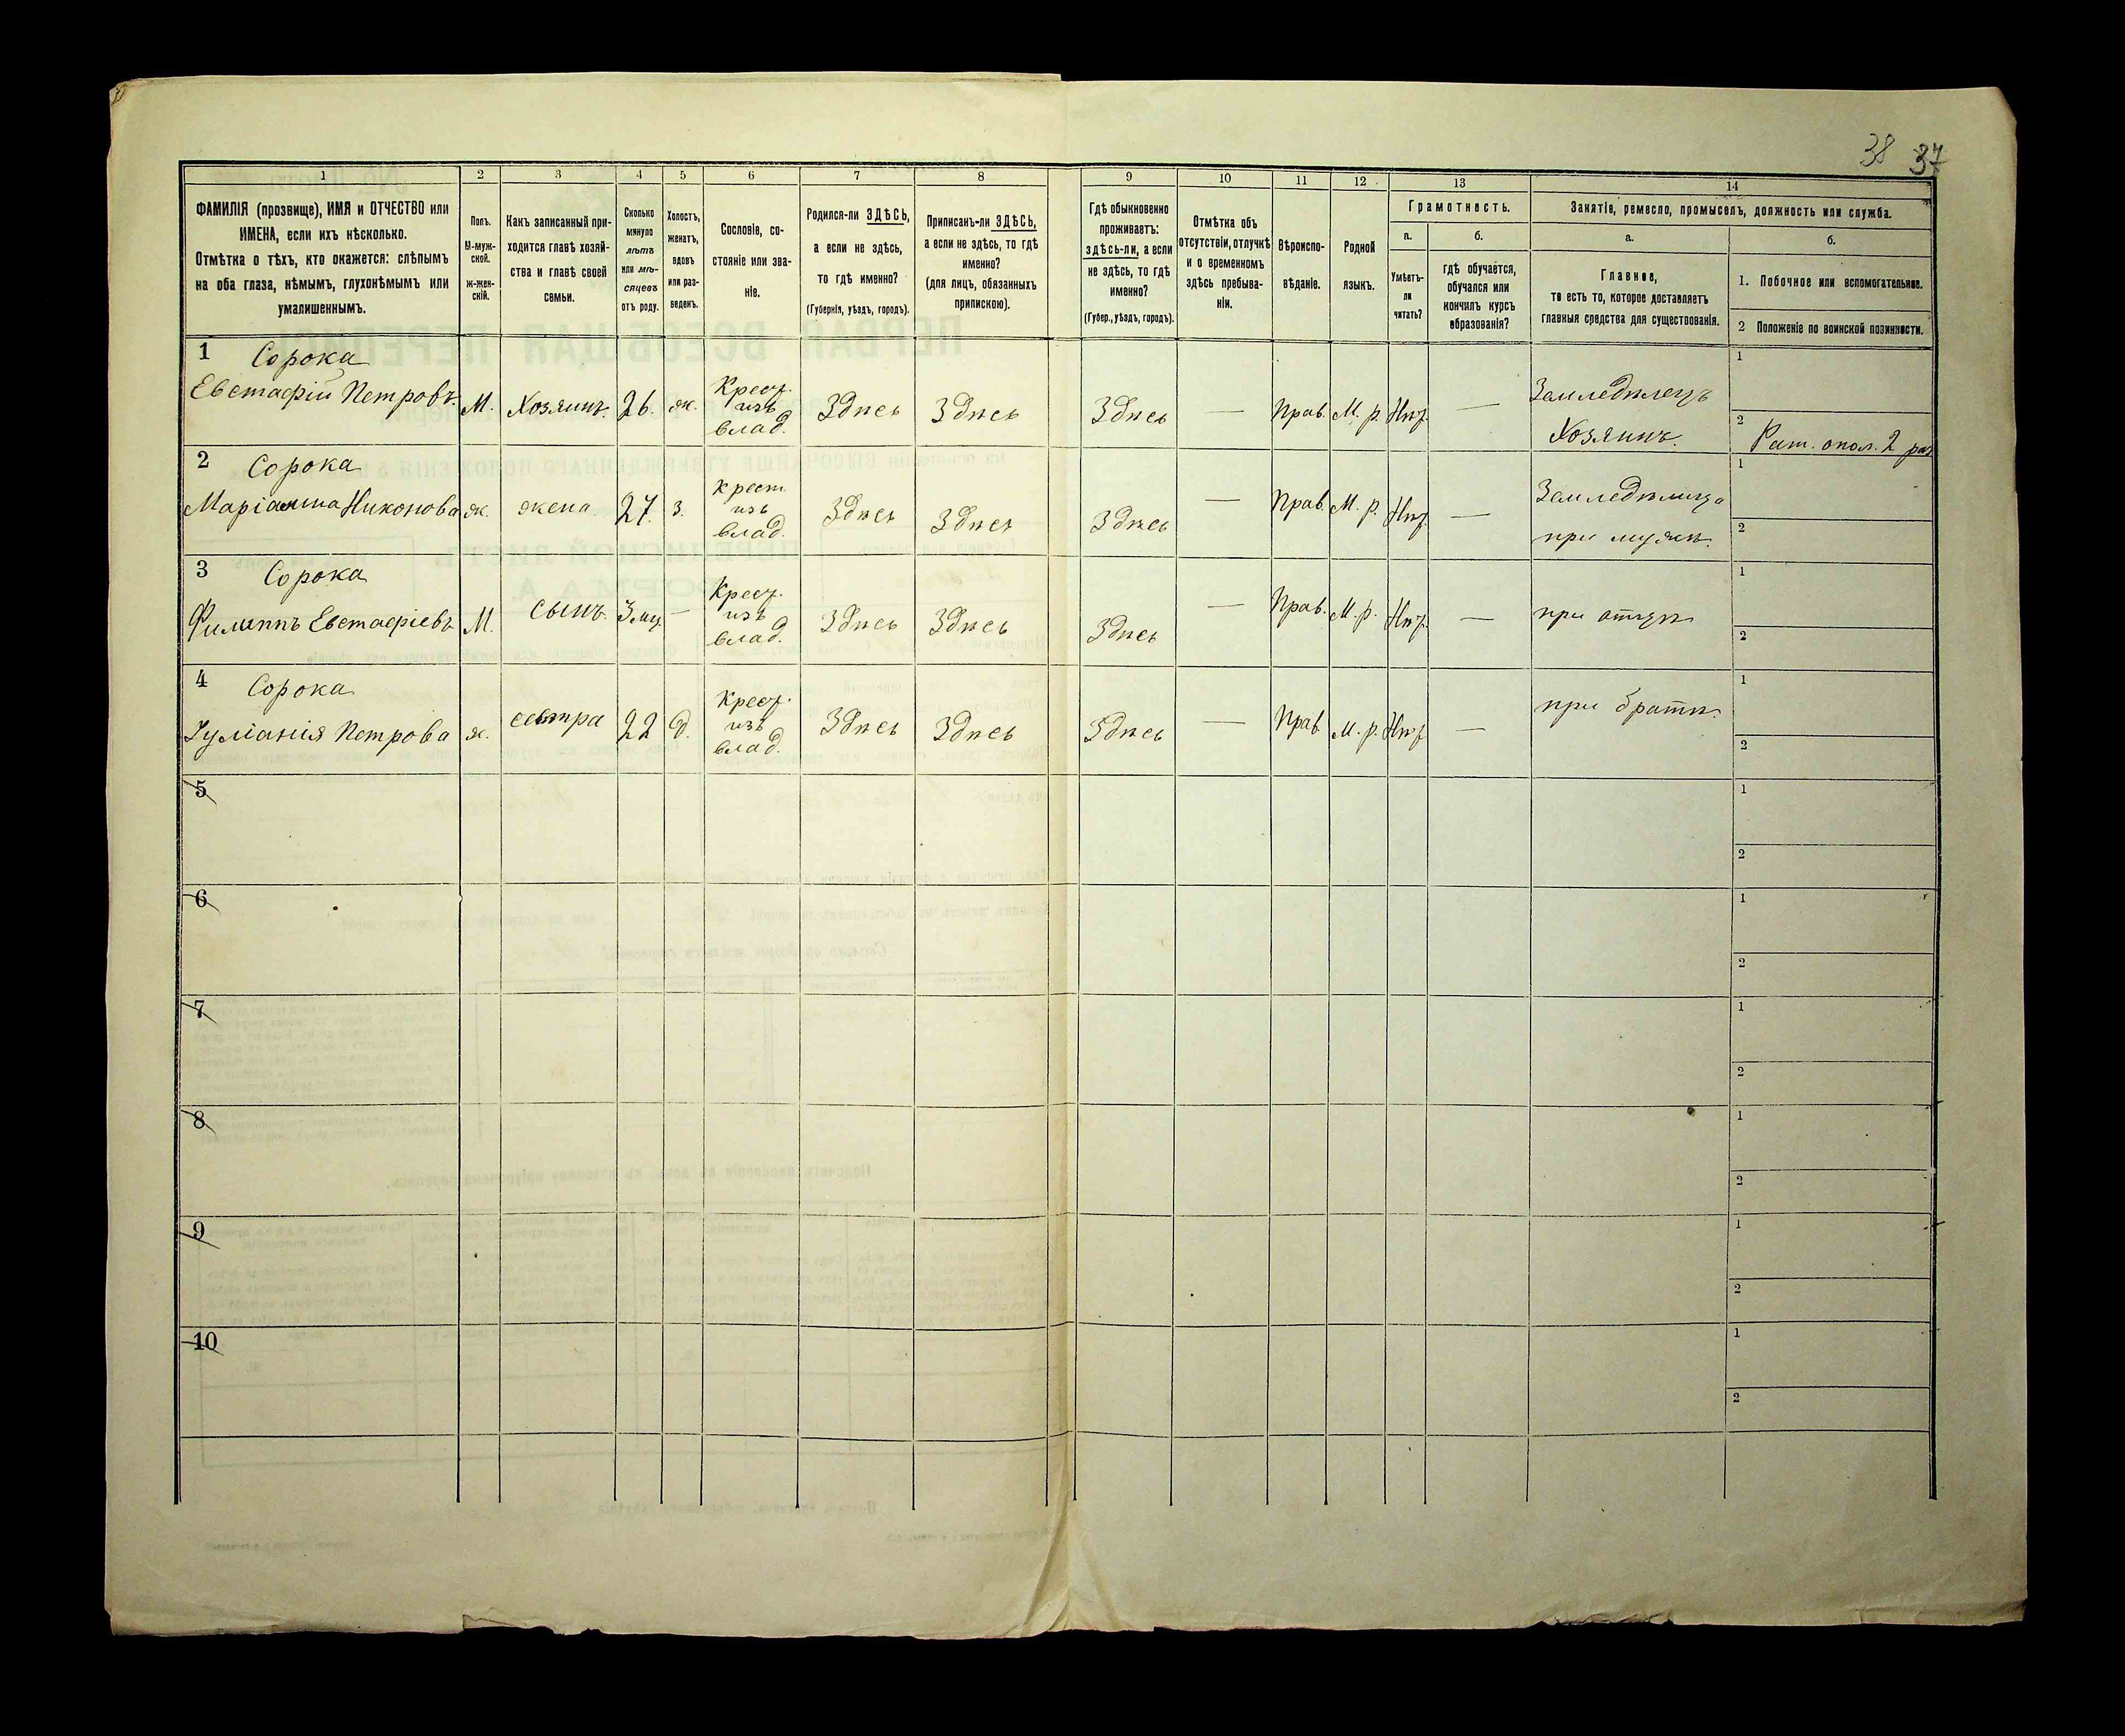 38 37
1
ФАМИЛІЯ (прозвище), ИМЯ и ОТЧЕСТВО или
ИМЕНА, если ихъ нѣсколько.
Отмѣтка о тѣхъ, кто окажется: слѣпымъ
на оба глаза, нѣмымъ, глухонѣмымъ или
умалишеннымъ.
2
Полъ.
М-муж-
ской.
Ж-жен-
скій.
3
Какъ записанный при-
ходится главѣ хозяй-
ства и главѣ своей
семьи.
4
Сколько
минуло
лѣтъ
или мѣ-
сяцевъ
отъ роду.
5
Холостъ,
женатъ,
вдовъ
или раз-
веденъ.
6
Сословіе, со-
стояніе или зва-
ніе.
7
Родился-ли ЗДѢСЬ,
а если не здѣсь,
то гдѣ именно?
(Губернія, уѣздъ, городъ).
8
Приписанъ-ли ЗДѢСЬ,
а если не здѣсь, то гдѣ
именно?
(для лицъ, обязанныхъ
припискою).
9
Гдѣ обыкновенно
проживаетъ:
здѣсь-ли, а если
не здѣсь, то гдѣ
именно?
(Губер., уѣздъ, городъ).
10
Отмѣтка объ
отсутствіи, отлучкѣ
и о временномъ
здѣсь пребыва-
ніи.
11
Вѣроиспо-
вѣданіе.
12
Родной
языкъ.
13
Грамотность.
а.
Умѣетъ-
ли
читать?
б.
гдѣ обучается,
обучался или
кончилъ курсъ
образованія?
14
Занятіе, ремесло, промыселъ, должность или служба.
а.
Главное,
то есть то, которое доставляетъ
главныя средства для существованія.
б.
1. Побочное или вспомогательное.
2 Положеніе по воинской повинности.
1 Сорока
Евстафій Петровъ.
М.
Хозяинъ.
26.
ж.
Крест.
изъ
влад.
Здѣсь
Здѣсь
Здѣсь
—
Прав.
М. р.
Нѣт.
—
Земледѣлецъ
Хозяинъ.
1
2 Рат. опол. 2 раз
2 Сорока
Маріанна Никонова
ж.
жена
27.
З.
Крест
изъ
влад.
Здѣсь
Здѣсь
Здѣсь
—
Прав.
М. р.
Нѣт.
—
Земледѣлица
при мужѣ.
1
2
3 Сорока
Филиппъ Евстафіевъ
М.
сынъ.
3 мц.
—
Крест.
изъ
влад.
Здѣсь
Здѣсь
Здѣсь
—
Прав.
М. р.
Нѣт.
—
при отцѣ
1
2
4 Сорока
Іуліанія Петрова
ж.
сестра
22
Крест.
изъ
влад.
Здѣсь
Здѣсь
Здѣсь
—
Прав
М. р.
Нѣт
—
при братѣ.
1
2
5
1
2
6
1
2
7
1
2
8
1
2
9
1
2
10
1
2